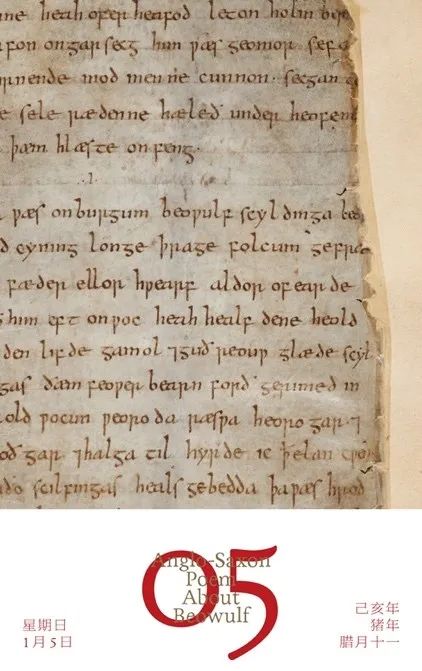 heah ofer heafod leton holm ber
on garsecg him wæs geomor sefa
mod men ne cunnon. secgan
sele rædenne hæleð under heofen
þæm hlæste onfeng.
.I.
wæs onburgum beowulf scyldinga
cyning longe þrage folcum gefræ
fæder ellor hwearf aldor of earde
him eft onwoc heah healfdene heold
den lifde gamol ⁊ guð reouw glæde scyl
gas ðæm feower bearn forð gerimed in
old wocun weoroda ræswa heorogar. ⁊
oð gar ⁊ halga til hyrde ic þelan
scilfingas heals gebedda þa wæs hroð
05
Anglo-Saxon
Poem
About
Beowulf
星期日
1月5日
己亥年
猪年
腊月十一